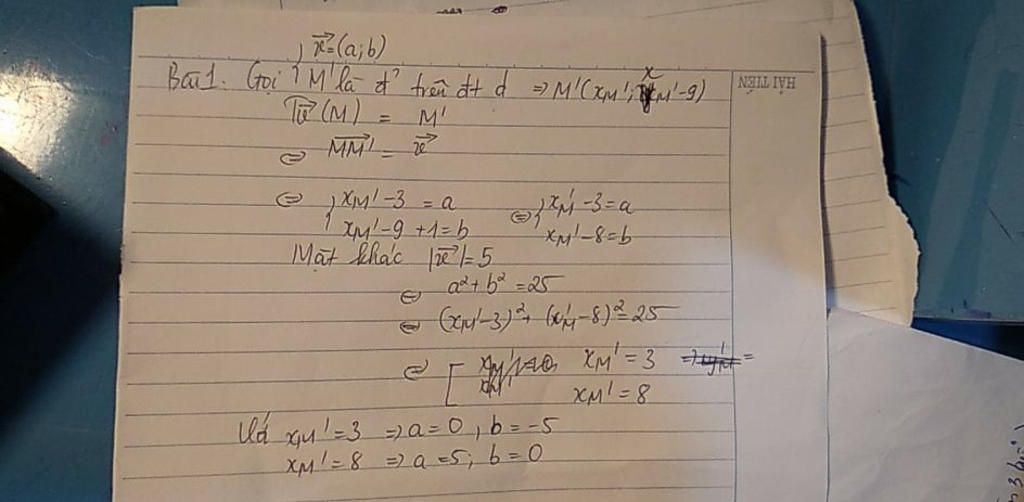 v⃗=(a;b)
Bài 1. Gọi M' là đ' trên đt d => M'(xM'; xM'-9)
HẢI TIẾN
Tv⃗(M) = M'
<=> MM'⃗ = v⃗
<=> { xM'-3 = a <=> { xM'-3=a
xM'-9+1=b xM'-8=b
Mặt khác |v⃗|=5
<=> a²+b²=25
<=> (xM'-3)²+(xM'-8)²=25
<=> [ xM'=3
xM'=8
Vớ xM'=3 => a=0, b=-5
xM'=8 => a=5; b=0